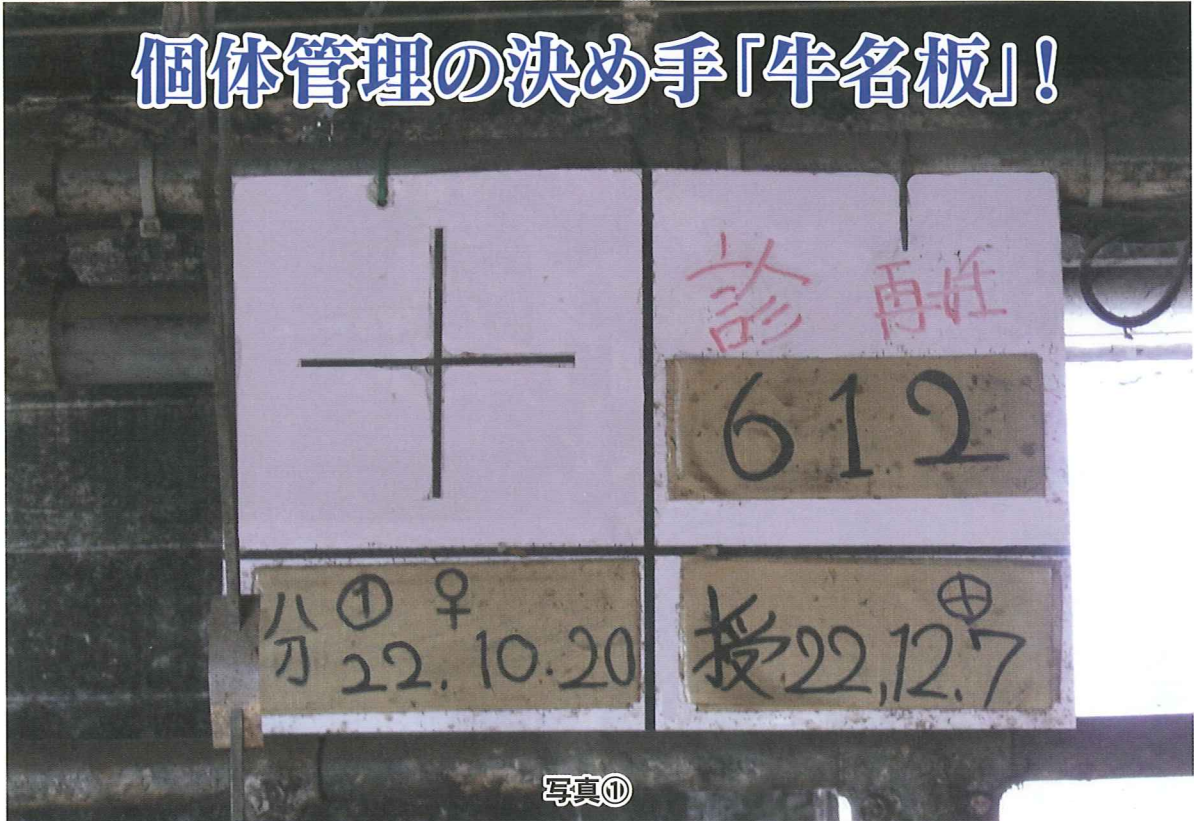 個体管理の決め手「牛名板」!
診 再妊
612
分 ① ♀
22.10.20
⊕
授22,12.7
写真①